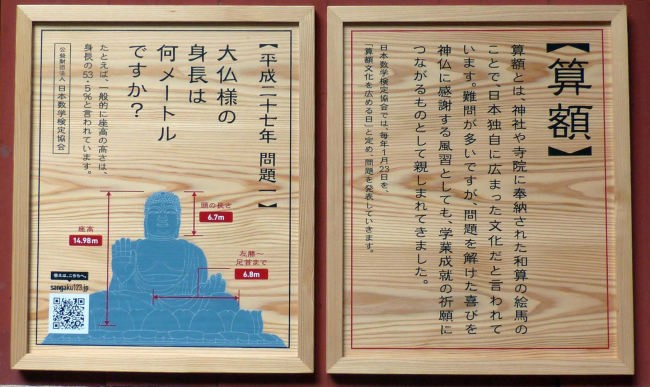 【算額】
算額とは、神社や寺院に奉納された和算の絵馬の
ことで、日本独自に広まった文化だと言われて
います。難問が多いですが、問題を解けた喜びを
神仏に感謝する風習としても、学業成就の祈願に
つながるものとして親しまれてきました。
日本数学検定協会では、毎年1月23日を、
「算額文化を広める日」と定め、問題を発表していきます。
【平成二十七年 問題一】
大仏様の
身長は
何メートル
ですか?
たとえば、一般的に座高の高さは、
身長の53.5%と言われています。
公益財団法人 日本数学検定協会
頭の長さ
6.7m
座高
14.98m
左膝〜
足首まで
6.8m
答えは、こちらへ。
sangaku123.jp